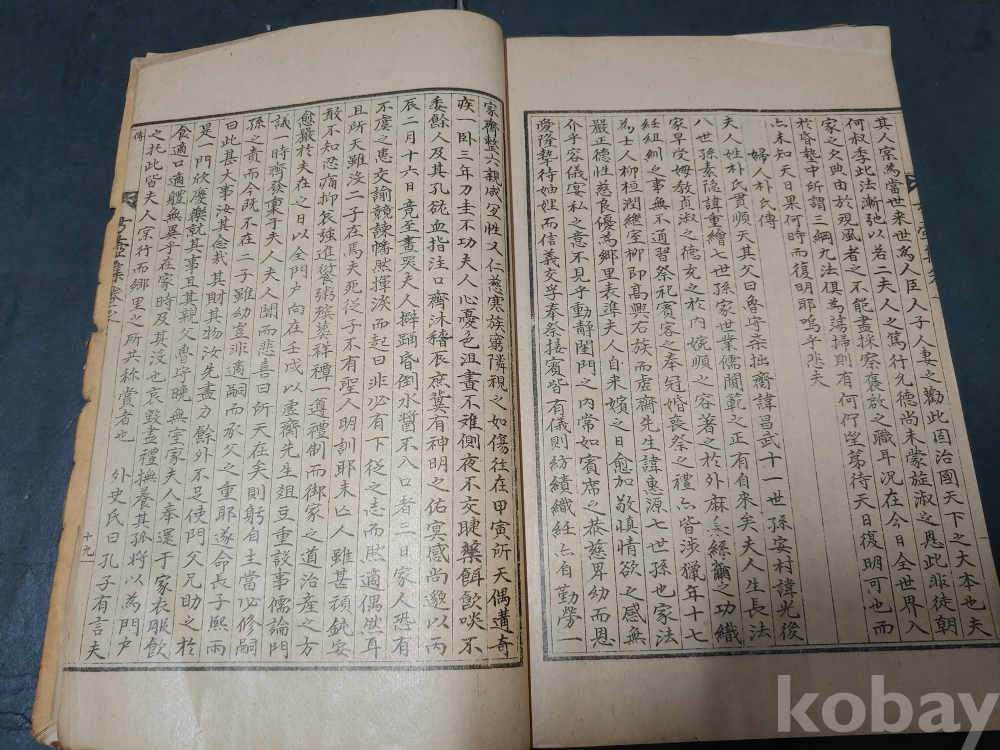 其人宗焉當世來世為人臣人子人妻之勸此固治國天下之大本也夫
何叔季此法漸弛以若二夫人之篤行允德尚未蒙旌淑之恩此非徒朝
家之欠典由於現風者之不能盡採察褒啟之職耳況在今日全世界入
於昏墊中所謂三綱九法俱為蕩掃則有何佇望第待天日復明可也而
亦未知天日果何時而復明耶嗚乎悲夫
婦人朴氏傳
夫人姓朴氏貫順天其父曰魯宇柒拙齋諱昌武十一世孫安村諱光後
八世孫素隱諱重繪七世孫家世業儒閫範之正有自來矣夫人生長法
家早受姆教貞淑之德充之於內婉順之容著之於外麻枲絲繭之功織
紝組紃之事無不通習祭祀賓客之奉冠婚喪祭之禮亦皆涉獵年十七
為士人柳桓潤繼室柳即高興右族而虛齋先生諱惠源七世孫也家法
嚴正德性慈良優為鄉里表準夫人自來嬪之日愈加敬慎情欲之感無
介乎容儀宴私之意不見乎動靜閨門之內常如賓席之恭慈畀幼而恩
愛隆摯待妯娌而信義交孚奉祭接賓皆有儀則紡績織紝亦自勤勞一
家齊整六親咸
性又仁慈寒族窮隣視之如傷往在甲寅所天偶遘奇
疾一卧三年刀圭不功夫人心憂色沮晝不離側夜不交睫藥餌飲啖不
委餘人及其孔
血指注口齋沐稽
庶冀有神明之佑冥感尚邈以丙
辰二月十六日竟至晝哭夫人擗踊昏倒水醬不入口者三日家人恐有
不虞之患交諭競諫幡然揮淚而起曰非必有下從之志而然適偶然耳
且所天雖沒二子在焉夫死從子不有聖人明訓耶未亡人雖甚頑鈍安
敢不知忍痛抑哀強進餐粥殯葬祥禫遵禮制而御家之道治產之方
愈嚴於夫在之日以全門戶向在壬戌以虛齋先生俎豆重設事儒論門
議時齊發稟于夫人夫人聞而悲喜曰所天在矣則躬自主當必修嗣
孫之責而今既不在二子雖幼豈非適嗣而承父之重耶遂命長子熙兩
曰此甚大事汝其念哉其財其物汝先盡力餘外不足使門父兄助之於
是一門欣慶樂就其事且其親父魯宇晚無室家夫人奉還于家衣服飲
食適口適體無異乎在家時及其沒也哀毀盡禮撫養其孤將以為門戶
之托此皆夫人宗行而鄉里之所共称賞者也 外史氏曰孔子有言夫
傳
集卷之
十九
kobay